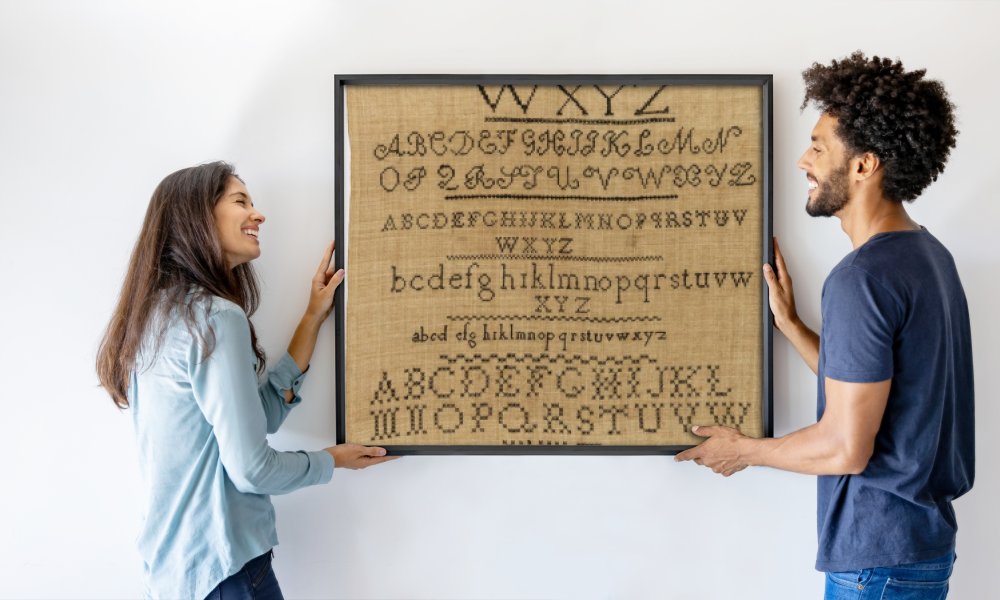 WXYZ
ABCDEFGHIJKLMN
OPQRSTUVWXYZ
ABCDEFGHIJKLMNOPQRSTUV
WXYZ
bcdefghiklmnopqrstuvw
XYZ
abcd efg hiklmnopqrstuvwxyz
ABCDEFGHIJKL
MNOPQRSTUVW